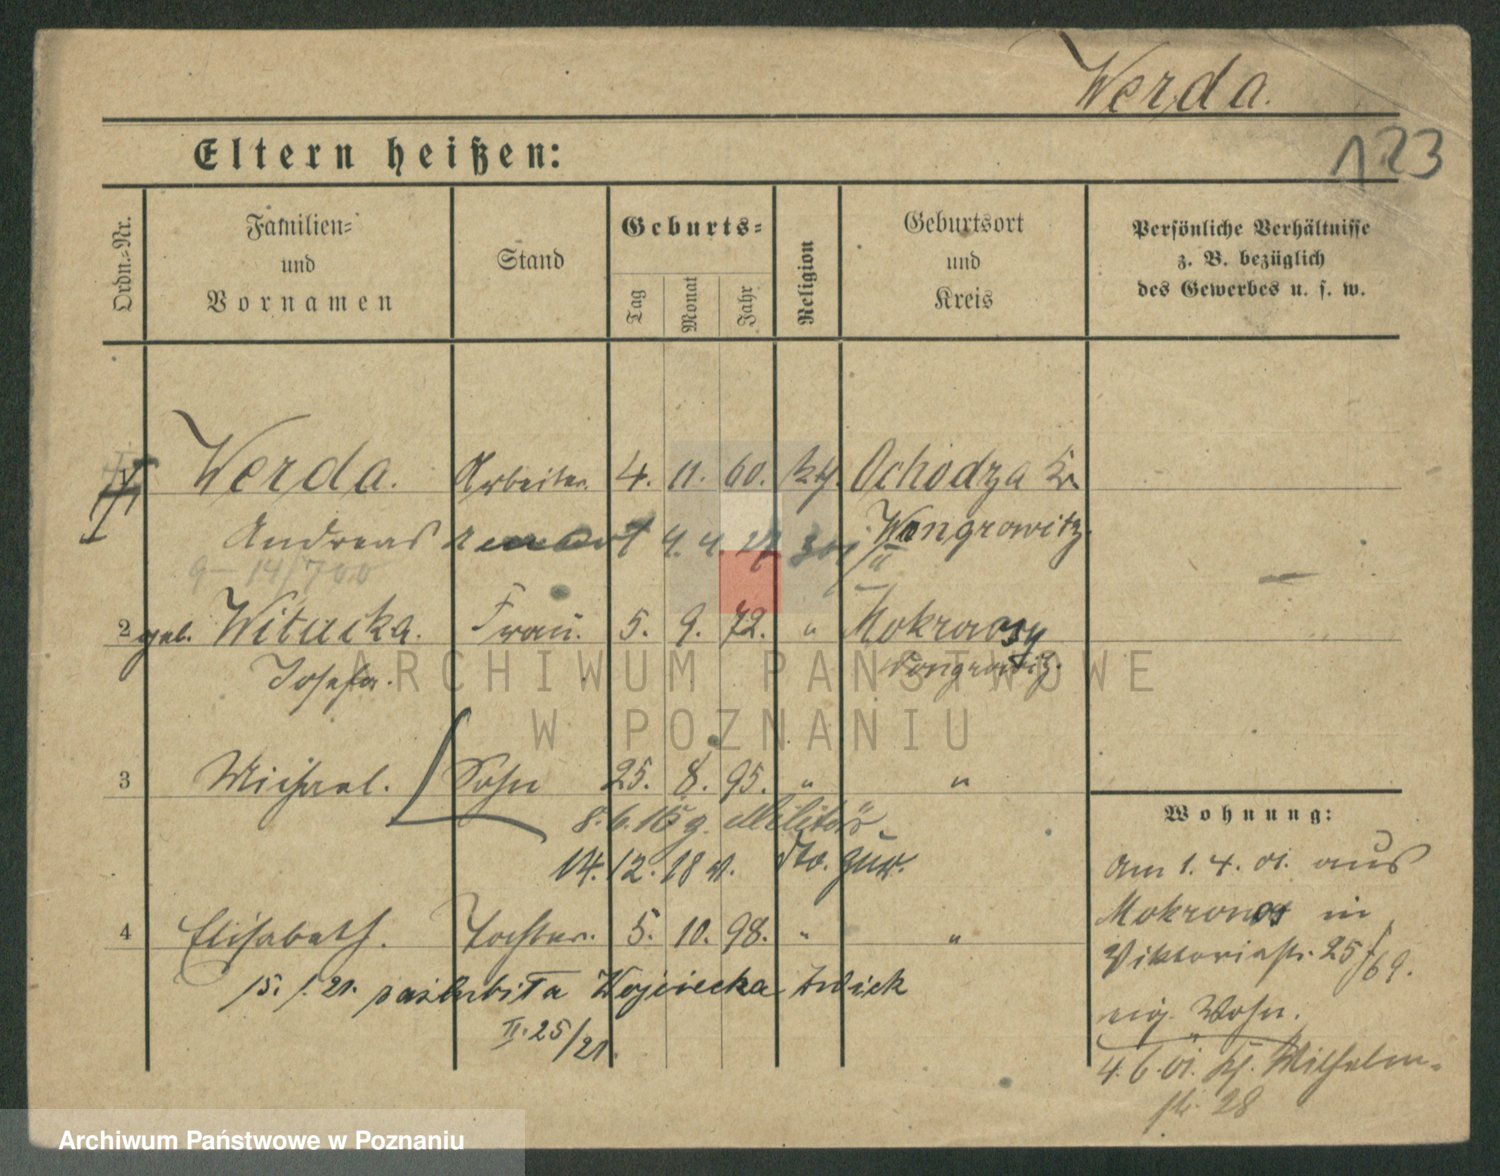 Werda.
123
Eltern heißen:
Ordn.-Nr.
Familien-
und
Vornamen
Stand
Geburts-
Tag
Monat
Jahr
Religion
Geburtsort
und
Kreis
Persönliche Verhältnisse
z. B. bezüglich
des Gewerbes u. s. w.
Werda. Arbeiter. 4. 11. 60. kth. Ochodza Kr.
Andreas 4. 4. 27 Wongrowitz.
9-14/700
2 geb. Witucka. Frau. 5. 9. 72. " Mokronosy
Josefa. Wongrowitz.
3 Michael. Sohn 25. 8. 95. " "
8. 6. 15 g. Militär
14. 12. 18 v. dto. zur.
4 Elisabeth. Tochter. 5. 10. 98. " "
15. 1. 21. zaślubiła Wojciecha
II. 25/21.
Wohnung:
Am 1. 4. 01. aus
Mokronos in
Viktoriastr. 25/69.
eig. Wohn.
4. 6. 01. Wilhelm-
str. 28
ARCHIWUM PAŃSTWOWE
W POZNANIU
Archiwum Państwowe w Poznaniu